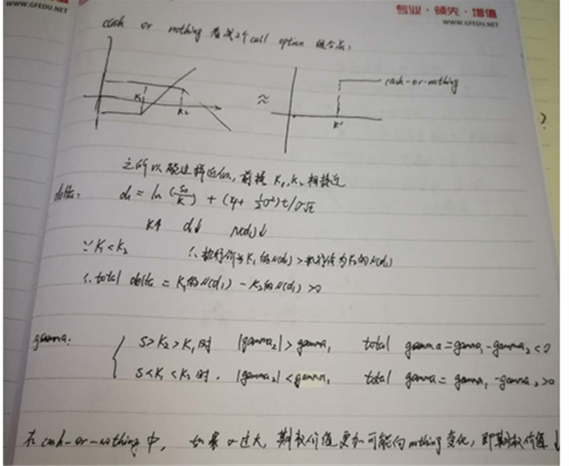 WWW.GFEDU.NET
专业·领先·增值
WWW.GFEDU.NET
cash or nothing 看成2个call option 组合成:
K₁ K₂ ≈ K cash-or-nothing
之所以能这样近似,前提 K₁, K₂ 相接近
delta: d₁ = ln(S₀/K) + (r+½σ²)t/σ√t
K↑ d₁↓ N(d₁)↓
∵ K₁<K₂ ∴ 执行价为K₁的N(d₁) > 执行价为K₂的N(d₁)
∴ total delta = K₁的N(d₁) - K₂的N(d₁) >0
gamma.
S>K₂>K₁时 |gamma₂|>gamma₁ total gamma=gamma₁-gamma₂<0
S<K₁<K₂时. |gamma₂|<gamma₁ total gamma= gamma₁-gamma₂>0
在 cash-or-nothing 中, 如果σ过大, 期权价值更加可能向nothing变化, 即期权价值↓